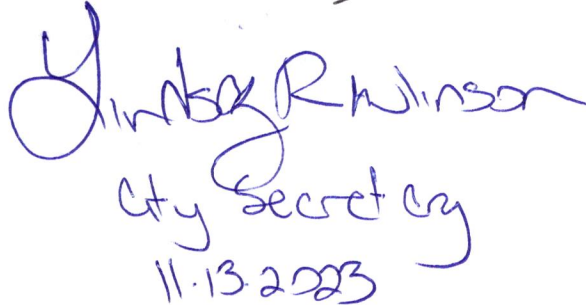 Lindsay Rawlinson
City Secretary
11.13.2023